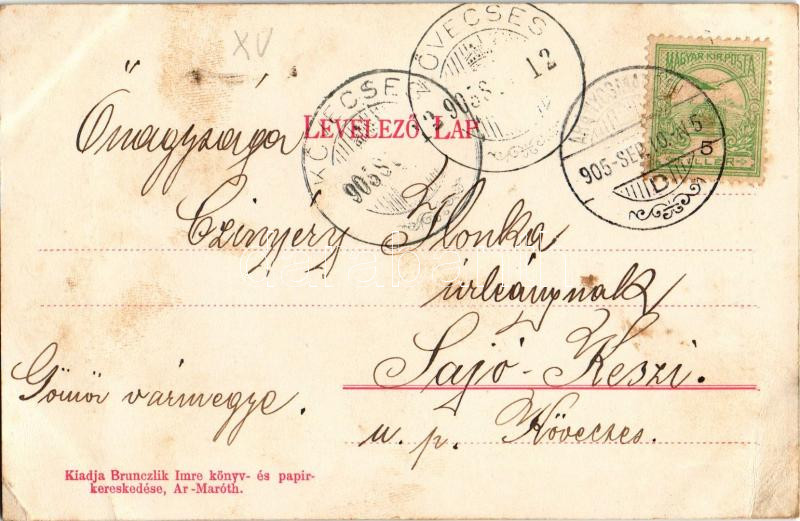 XV
KÖVECSES
12
905 S
KÖVECSES
905 S
MAGYAR KIR. POSTA
5
905-SEP.10.-N 5
D
LEVELEZŐ LAP
Őnagysága
Czinyery Ilonka
úrleánynak
Sajó-Keszi.
Gömör vármegye.
u. p. Kövecses.
Kiadja Brunczlik Imre könyv- és papir-
kereskedése, Ar-Maróth.